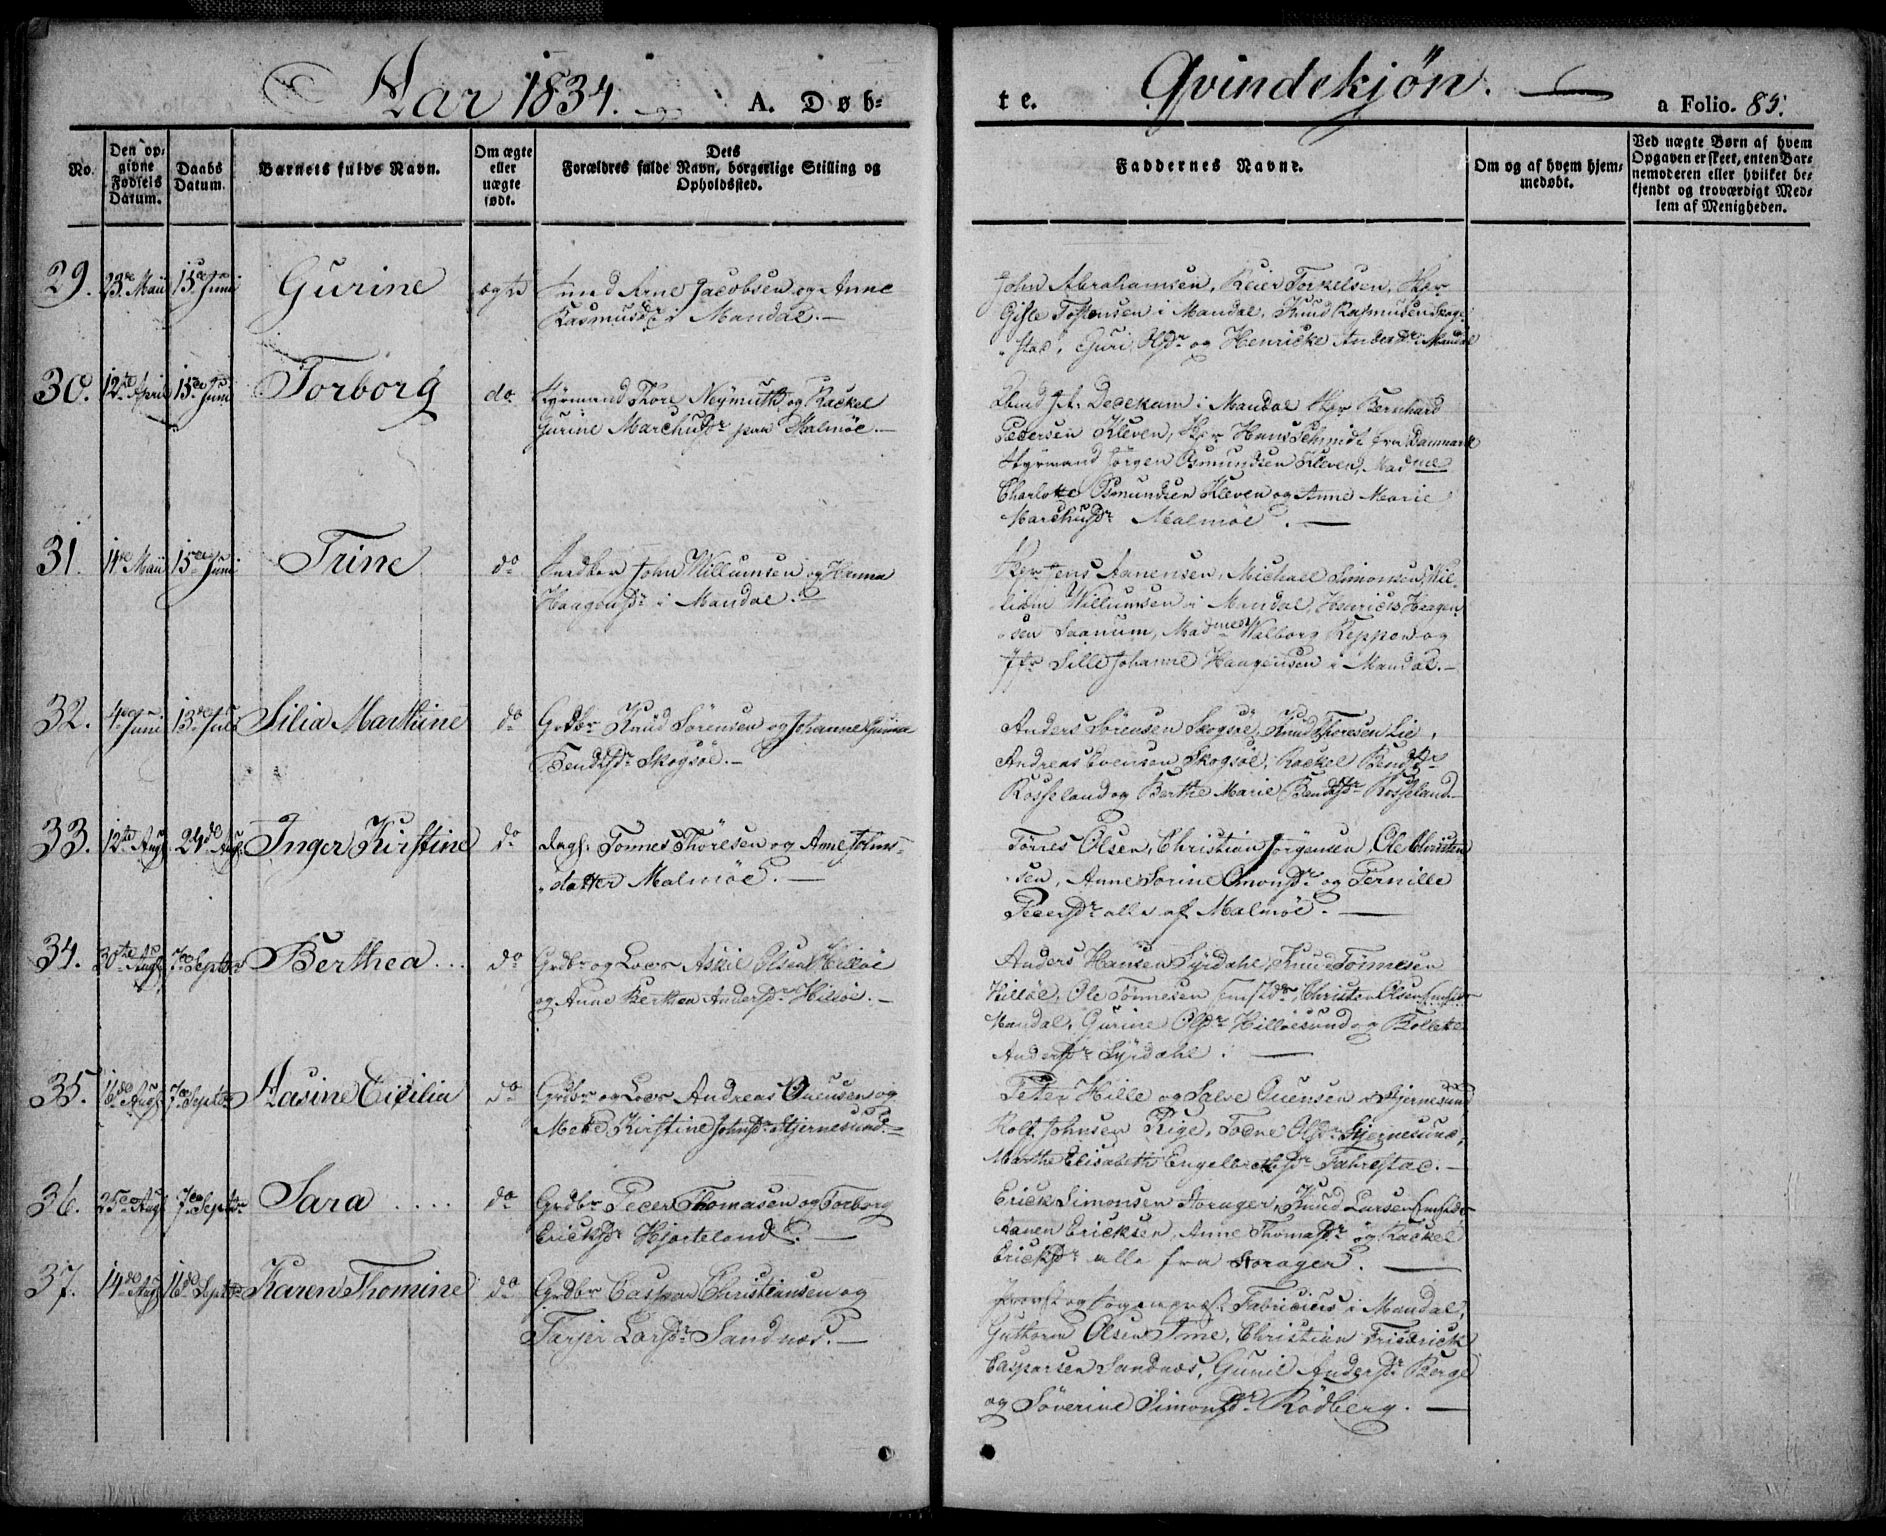 Aar 1834. A. Døb-
te. Qvindekjøn. a Folio. 85.
No.
Den op-
givne
Fødsels
Datum.
Daabs
Datum.
Barnets fulde Navn.
Om ægte
eller
uægte
født.
Dets
Forældres fulde Navn, borgerlige Stilling og
Opholdssted.
Faddernes Navne.
Om og af hvem hjem-
medøbt.
Ved uægte Børn af hvem
Opgaven er skeet, enten Bar-
nemoderen eller hvilket be-
kjendt og troværdigt Med-
lem af Menigheden.
29. 23de Maii 15de Juni Gurine ægte Arne Jacobsen og Anne
Rasmusdr i Mandal.
John Abrahamsen, Reier Torkelsen, Skpr
Gifle Tostensen i Mandal, Knud Rasmusen Skoge-
stad, Guri Olsdr og Henricke Andersdr i Mandal
30. 12te April 15de Juni Torborg do Styrmand Thore Neymuth og Rackel
Gurine Marchusdr paa Malmöe.
Decekam i Mandal Skpr Bernhard
Pedersen Kleven, Skpr Hans Schmidt fra Danmark
Styrmand Jörgen Osmundsen Kleven, Madme
Charlotte Osmundsen Kleven og Anne Marie
Marchusdr Malmöe.
31. 11te Maii 15de Juni Trine do John Willumsen og Hanna
Haagensdr i Mandal.
Skpr Jens Aanensen, Michael Simonsen, Wil-
liam Willumsen i Mandal, Henrich Haagen-
sen Saanum, Madmes Walborg Reppen og
Jfr Sille Johanne Haagensen i Mandal.
32. 4de Juni 13de Juli Silia Marthine do Grdbr Knud Sörensen og Johanne Gurine
Bendtsdr Skogsöe.
Anders Sörensen Skogsöe, Knud Thoresen Lie,
Andreas Evensen Skogsöe, Rackel Bendtsdr
Rosseland og Berthe Marie Bendtsdr Rosseland
33. 12te Augs 24de Augs Inger Kirstine do Dags. Tönnes Thoresen og Anne Johns-
datter Malmöe.
Törres Olsen, Christian Jörgensen, Ole Christen-
sen, Anne Sorine Omonsdr og Pernille
Pedersdr alle af Malmöe.
34. 30te Augs 7de Septbr Berthea ... do Grdbr og Lods Askil Olsen Hillöe
og Anne Berthea Andersdr Hillöe.
Anders Hansen Syrdahl, Knud Tönnesen
Hillöe, Ole Tönnesen, Christen Olsen
Mandal, Gurine Olsdr Hillöesund og Bollette
Andersdr Syrdahl.
35. 16de Augs 7de Septbr Aasine Cicilia do Grdbr og Lods Andreas Ouensen og
Mette Kirstine Johnsdr Stjernesund.
Peter Hille og Salve Ouensen Stjernesund
Rolf Johnsen Rige, Todne Olsdr Stjernesund,
Marthe Elisabeth Engelbretsdr Fahrestad.
36. 25de Augs 7de Septbr Sara .... do Grdbr Peder Thomasen og Torborg
Ericksdr Hjorteland.
Erick Simonsen Storager, Knud Larsen
Aanen Ericksen, Anne Thomasdr og Rackel
Ericksdr alle fra Storager.
37. 14de Augs 16de Septbr Karen Thomine do Grdbr Caspar Christiansen og
Tarjer Larsdr Sandnæs.
Provst og Sognepræst Fabricius i Mandal,
Guthorm Olsen Ime, Christian Friedrick
Casparsen Sandnæs, Gunil Andersdr Berge
og Söverine Simonsdr Rödberg.